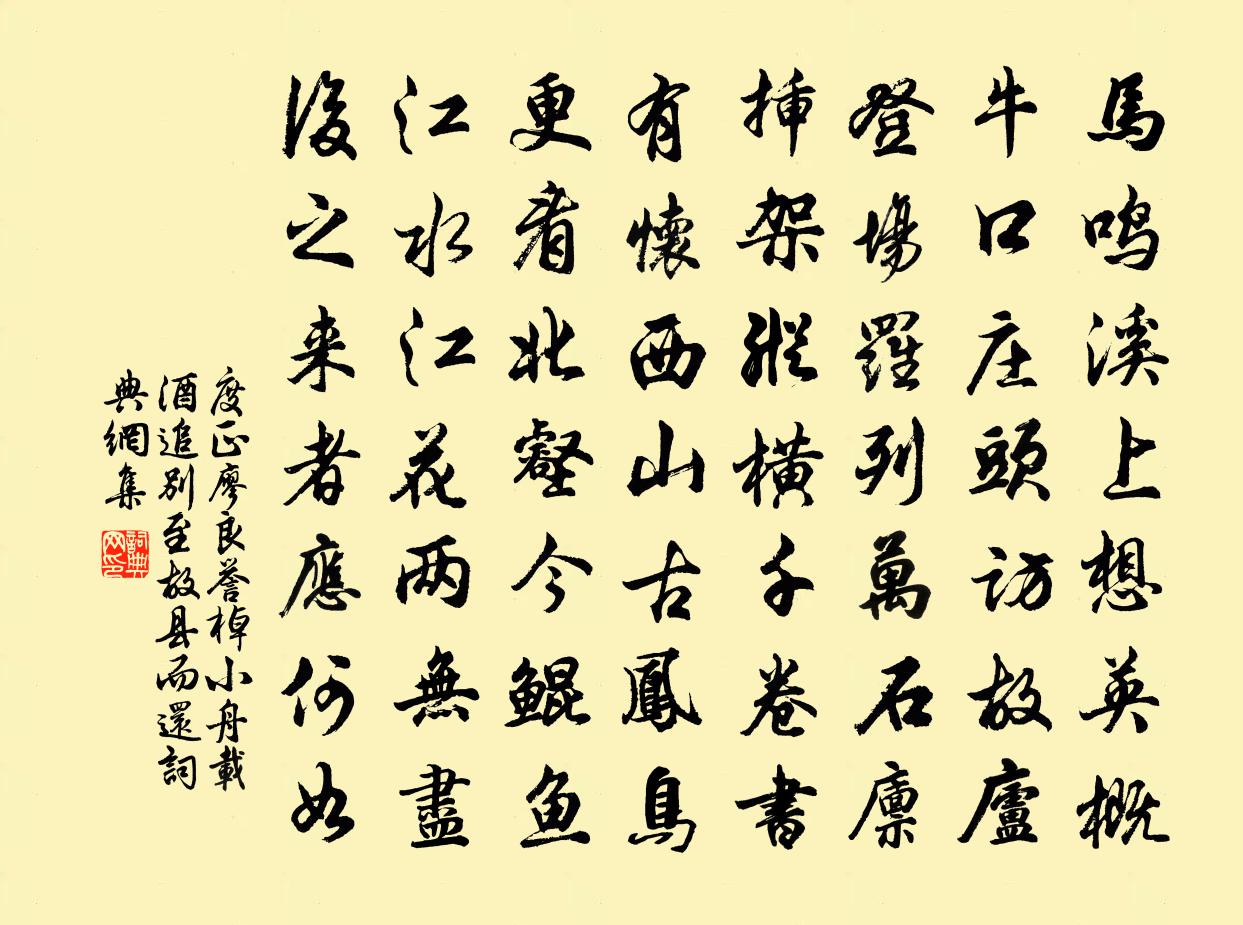 馬鸣溪上想英概
牛口庄頭訪故廬
登場羅列萬石廪
插架縱横千卷書
有懷西山古鳳鳥
更看北壑今鲲鱼
江水江花两無盡
後之来者應何如
度正廖良誉棹小舟載
酒追别至故县而還詞
典網集
詞典网印